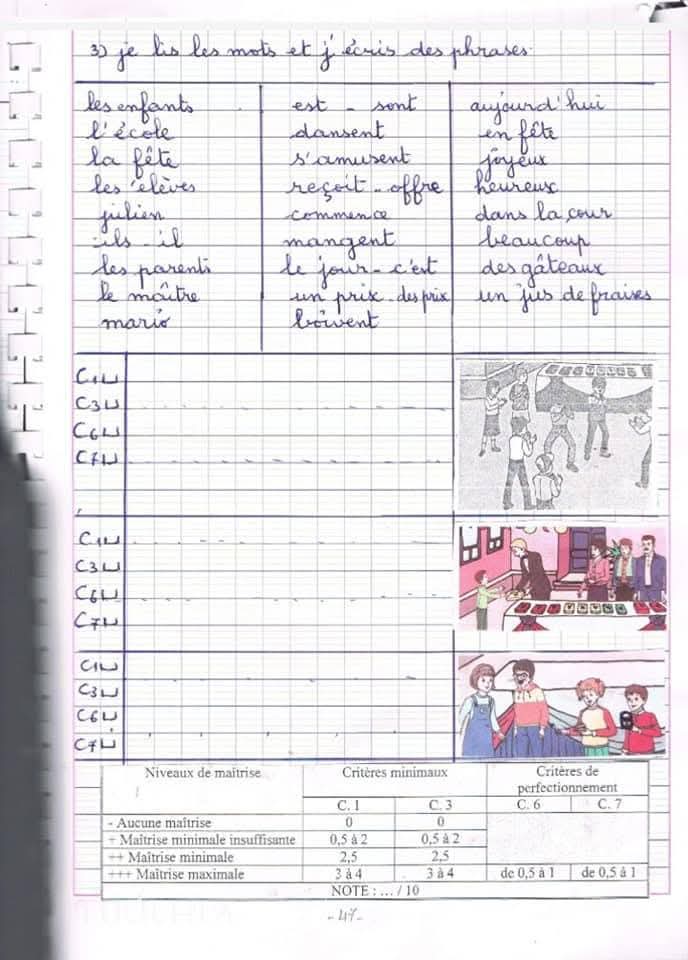 3) je lis les mots et j'écris des phrases.
les enfants est - sont aujourd'hui
l'école dansent en fête
la fête s'amusent joyeux
les élèves reçoit - offre heureux
julien commence dans la cour
ils - il mangent beaucoup
les parents le jour - c'est des gâteaux
le maître un prix - des prix un jus de fraises
mario boivent
C1
C3
C6
C7
C1
C3
C6
C7
C1
C3
C6
C7
Niveaux de maîtrise Critères minimaux Critères de
perfectionnement
C. 1 C. 3 C. 6 C. 7
- Aucune maîtrise 0 0
+ Maîtrise minimale insuffisante 0,5 à 2 0,5 à 2
++ Maîtrise minimale 2,5 2,5
+++ Maîtrise maximale 3 à 4 3 à 4 de 0,5 à 1 de 0,5 à 1
NOTE : ... / 10
- 47 -